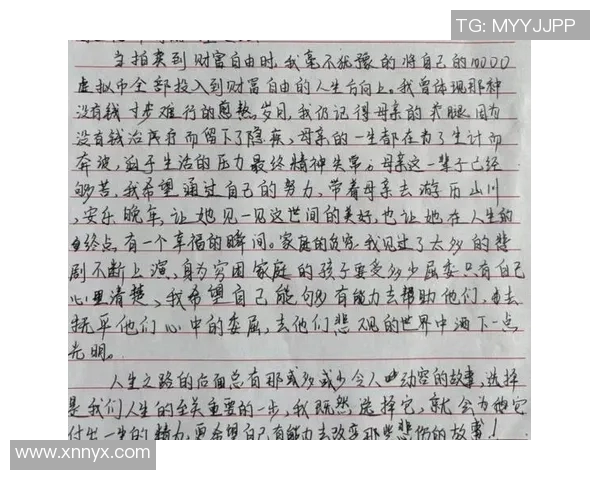 TG: MYYJJPP
当拍卖到财富自由时,我毫不犹豫的将自己的10000
虚拟币全部投入到财富自由的人生方向上。我曾体现那种
没有钱寸步难行的煎熬岁月,我仍记得母亲的 腿因为
没有钱治疗而留下了隐疾,母亲的一生都在为了生计而
奔波,迫于生活的压力最终精神失常。母亲这一辈子已经
够苦,我希望通过自己的努力,带着母亲去游历山川
,安乐晚年,让她见一见这世间的美好,也让她在人生的
终点有一个幸福的瞬间。家庭的贫穷,我见过了太多的悲
剧不断上演,身为穷困家庭的孩子要受多少屈委只有自己
心里清楚,我希望自己能够有能力去帮助他们,去
抚平他们心中的委屈,去他们悲观的世界中洒下一点
光明。
人生之路的后面总有那或多或少令人动容的故事,选择
是我们人生的至关重要的一步,我既然选择它,就会为他
付出一生的精力,更希望自己有能力去改变那些悲伤的故事!
www.xnnyx.com